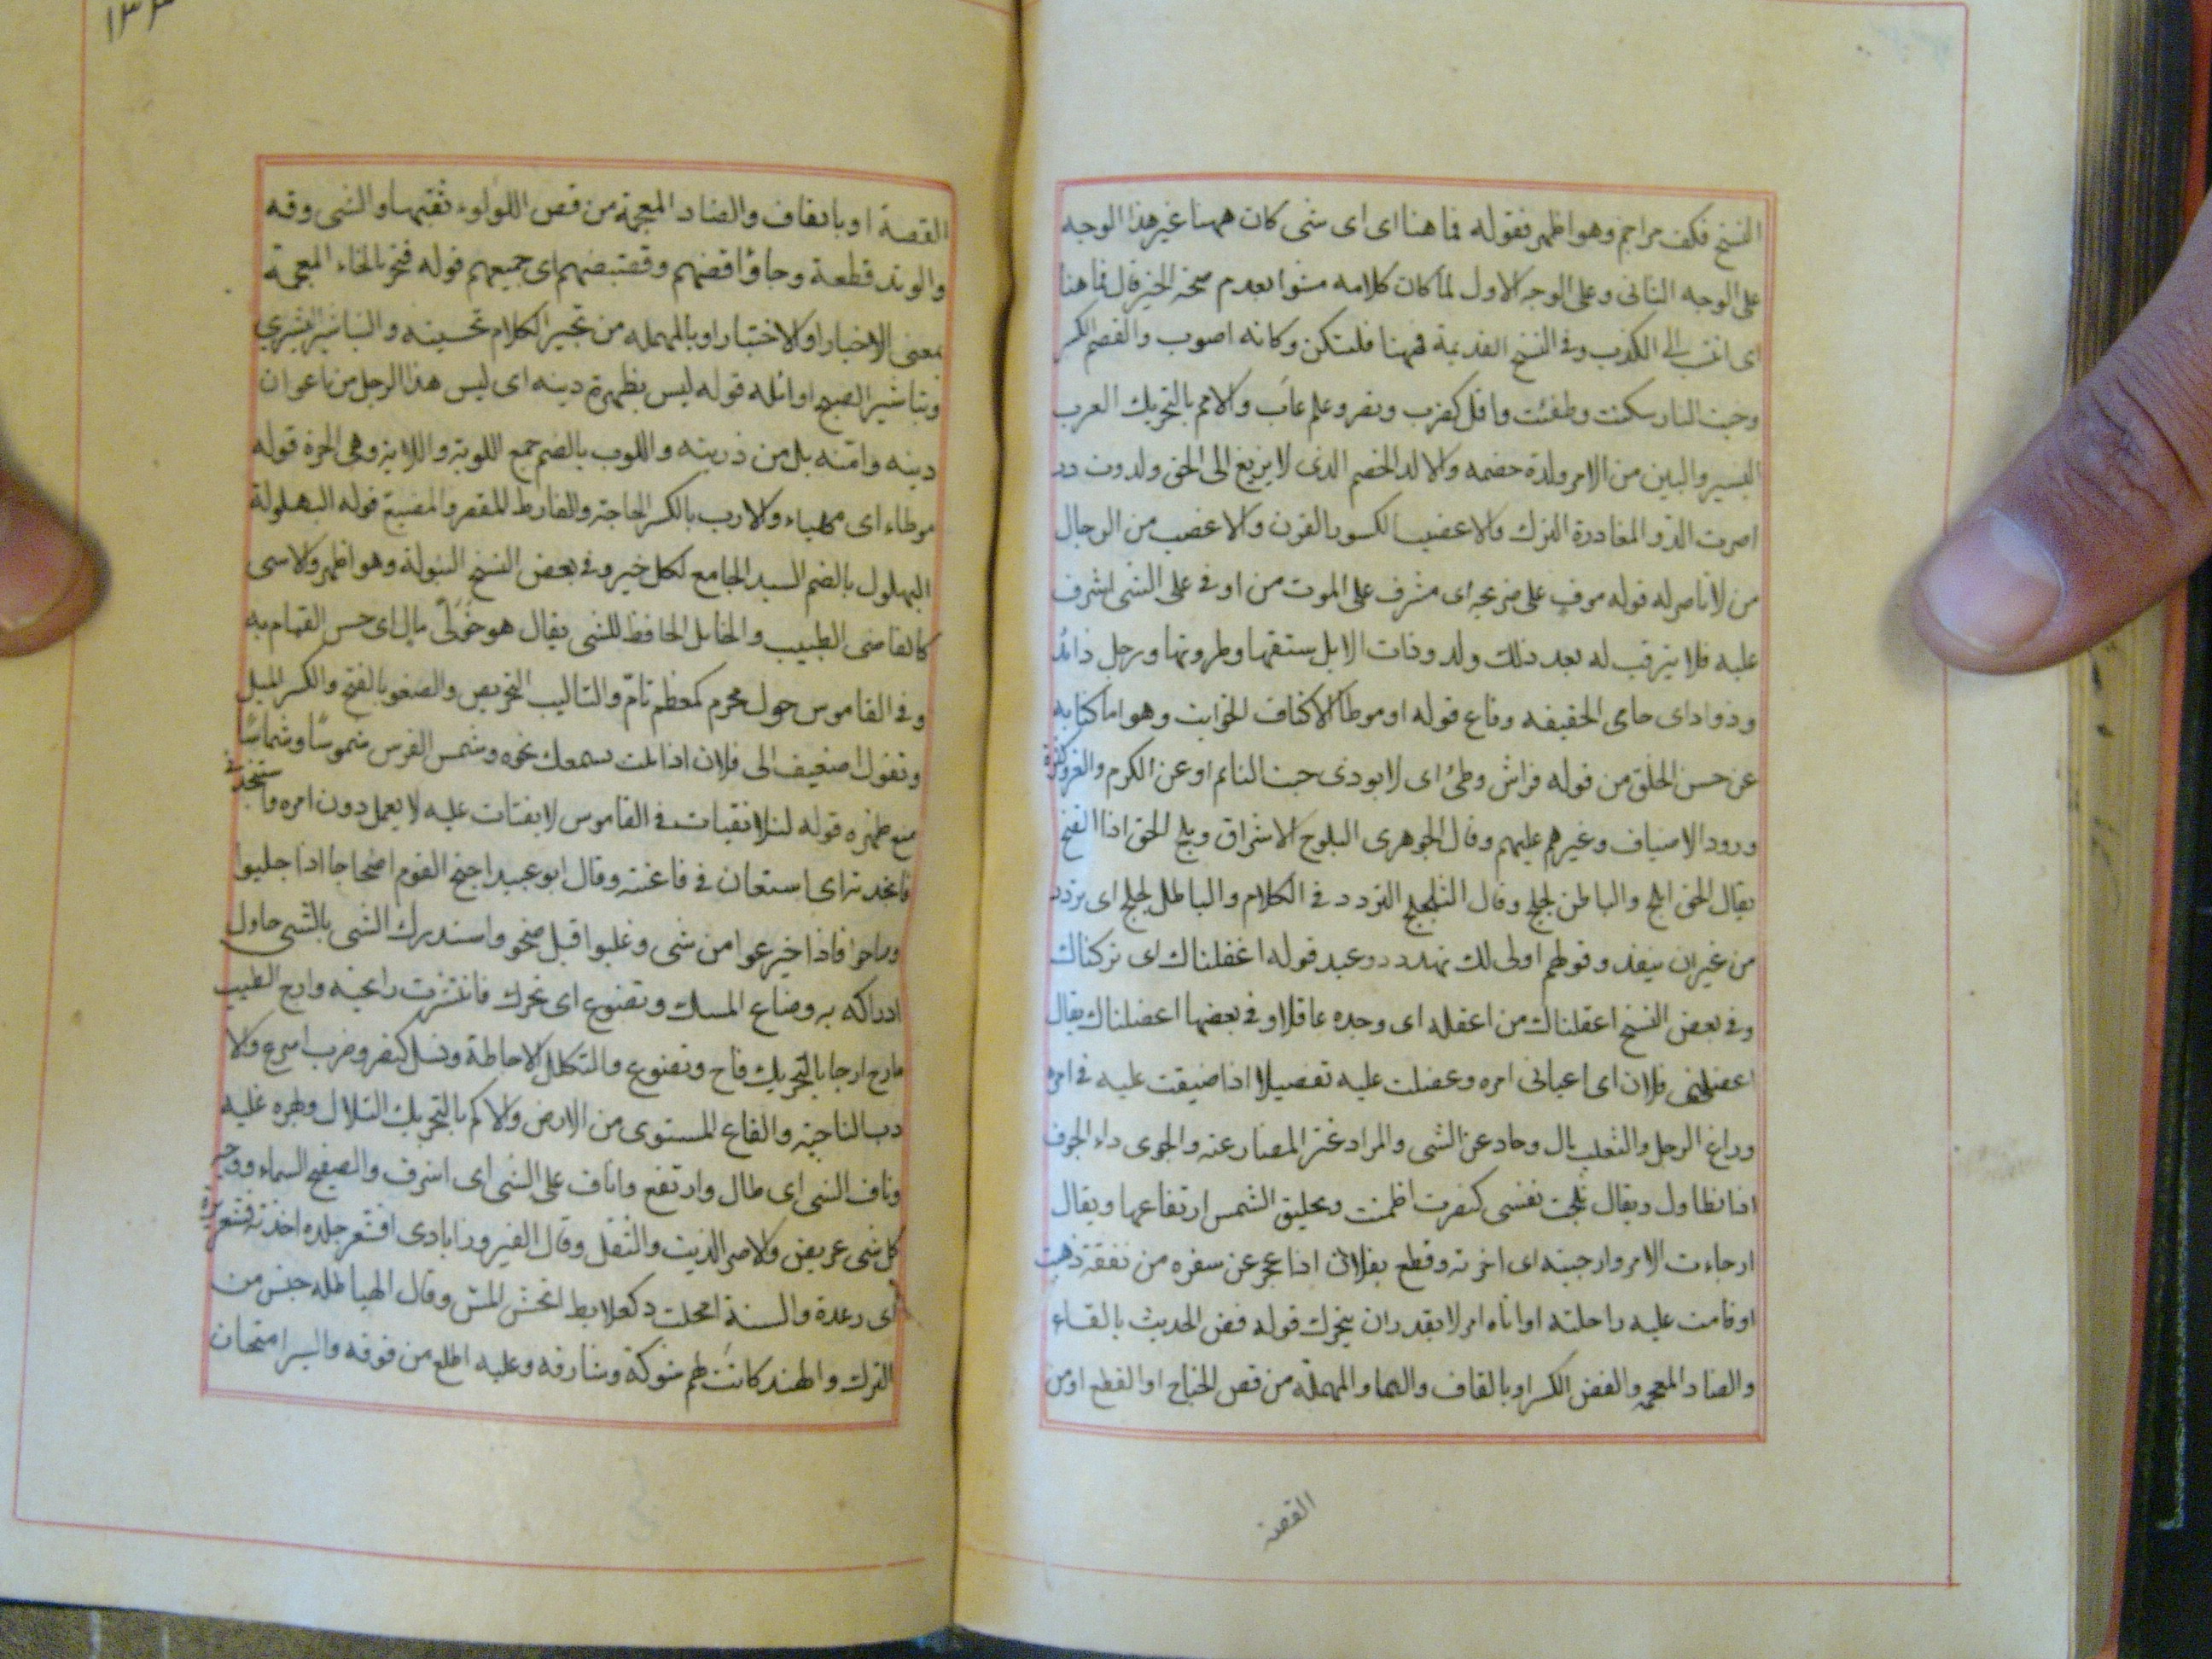 النسخ فكيف مراجم وهو اظهر فقوله فما هنا اى اى شى كان ههنا غير هذا الوجه
على الوجه الثانى وعلى الوجه الاول لما كان كلامه مشوا بعدم صحة الخبر قال فما هنا
اى انتسب الى الكذب وفى النسخ القديمة فههنا فلتكن وكانه اصوب والقصم الكسر
وخبت النار سكنت وطفئت وافل كضرب ونصر وعلم غاب والامم بالتحريك القرب
اليسير والبين من الامر ولده خصمه والالد الخصم الذى لا يزيغ الى الحق ولدوت در
اصرت الذو المغادرة الترك والاعضب المكسور القرن والاعضب من الرجال
من لا ناصر له قوله موف على ضريحه اى مشرف على الموت من اوفى على الشى اشرف
عليه فلا يترقب له بعد ذلك ولد وذات الابل ستقها وطردتها ورجل ذائد
وذواد اى حامى الحقيقه دفاع قوله او موطأ الاكناف للخوابت وهو اما كناية
عن حسن الخلق من قوله فراش وطئ اى لا يوذى جنب النائم او عن الكرم والعز وكثرة
ورود الاضياف وغيرهم عليهم وقال الجوهرى البلوج الاشراق وبلج الحق اذا اتضح
يقال الحق ابلج والباطل لجلج وقال التلجلج التردد فى الكلام والباطل لجلج اى تردد
من غير ان ينفذ وقولهم اولى لك تهدد ووعيد قوله اغفلناك اى تركناك
وفى بعض النسخ اعقلناك من اعقله اى وجده عاقلا وفى بعضها اعضلناك يقال
اعضلنى فلان اى اعيانى امره وعضلت عليه تعضيلا اذا ضيقت عليه فى امره
وراغ الرجل والثعلب مال وحاد عن الشى والمراد غز المصارعته والجوى داء الجوف
اذا تطاول ويقال ثلجت نفسى كنصرت اطمنت وتحليق الشمس ارتفاعها ويقال
ارجاءت الامر وارجيته اى اخرته وقطع بفلان اذا عجز عن سفره من نفقة ذهبت
او قامت عليه راحلته او اتاه امر لا يقدر ان يتحرك قوله فض الحديث بالفاء
والضاد المعجمه والفض الكسر او بالقاف والصاد المهملة من قص الجناح او القطع او من
القصة
١٣٢
القصة او بالقاف والضاد المعجمة من قض اللؤلوء ثقبها والشى دقه
والوتد قطعة وجاؤا قضهم وقضيضهم اى جميعهم قوله فتخبر بالخاء المعجمة
بمعنى الاخبار او الاختبار او بالمهمله من تحبير الكلام تحسينه والتباشير البشرى
وتباشير الصبح اوائله قوله ليس بظهرة دينه اى ليس هذا الرجل من اعوان
دينه وامته بل من ذريته واللوب بالضم جمع اللوبة واللابة وهى الحرة قوله
موطاء اى مهياء والارب بالكسر الحاجة والفارط المقصر والمضيع قوله البهلولة
البهلول بالضم السيد الجامع لكل خير وفى بعض النسخ البتولة وهو اظهر والاسى
كالقاضى الطبيب والخائل الحافظ للشى يقال هو خولى مال اى حسن القيام به
وفى القاموس حول مجرم كمعظم تام والتاليب التحريض والصغو بالفتح والكسر الميل
وتقول اصغيت الى فلان اذا ملت بسمعك نحوه وشمس الفرس شموسا وشماسا
منع ظهره قوله لئلا نفتات فى القاموس لا يفتات عليه لا يعمل دون امره واستنجد فى
فانجدته اى استعان فى فاعنته وقال ابو عبيد اضج القوم اضجاجا اذا جلبوا
وصاحوا فاذا جزعوا من شى وغلبوا قيل ضجوا واستدرك الشى بالشى حاول
ادراكه به وضاع المسك وتضوع اى تحرك فانتشرت رائحته وارج الطيب
يارج ارجا بالتحريك فاح وتضوع والتكلل الاحاطة ونسل كنصر وضرب اسرع والا
دب الناحية والقاع المستوى من الارض والاكم بالتحريك التلال وظهره عليه
وناف الشى اى طال وارتفع واناف على الشى اى اشرف والصفيح السماء ووجه
كل شى عريض والاصر الذنب والثقل وقال الفيروزابادى اقشعر جلده اخذته قشعريرة
اى رعدة والسنة امحلت دكعلابط الخشن المس وقال الهياطله جنس من
الترك والهند كانت لهم شوكة وشارفه وعليه اطلع من فوقه والسبر امتحان